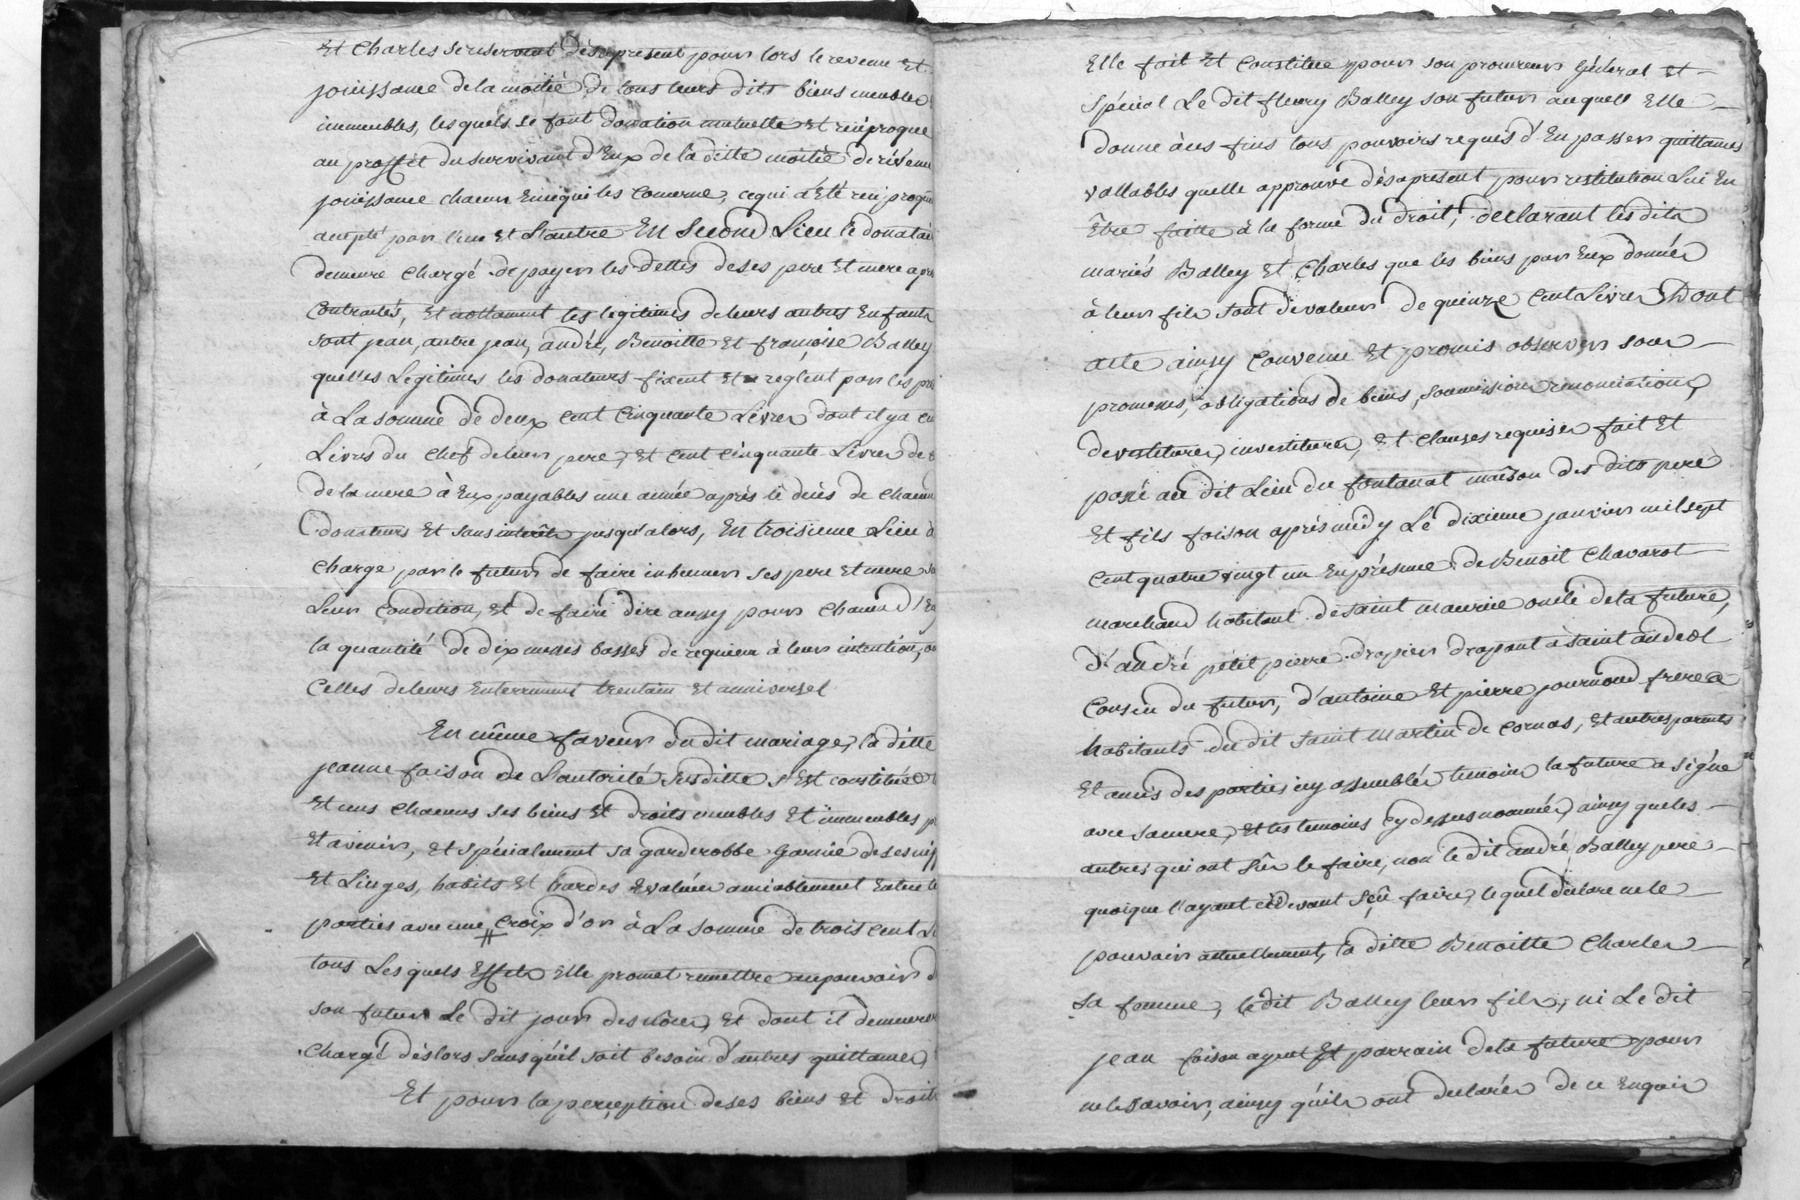 Et Charles se reservent dès apresent pour lors le revenu et
jouissance de la moitié de tous leurs dits biens meubles
immeubles, les quels se font donation mutuelle et reciproque
au proffit du survivant d'Eux de la ditte moitié de revenu
jouissance chacun En ce qui les concerne, ce qui a été
accepté par l'un et L'autre En Second Lieu le
demeure chargé de payer les dettes de ses pere et mere
Contractés, et nottament les legitimes de leurs autres Enfants
sont jean, autre jean, andré, Benoitte et françoise Balley
quelles Legitimes les donateurs fixent et reglent par les
à La somme de deux cent Cinquante Livres dont il y a
Livres du chef de leur pere, et cent cinquante Livres de
de la mere à Eux payables une année après le décès de chacun
donateurs et sans interêts jusqu'alors, En troisieme Lieu
charge par le futur de faire inhumer ses pere et mere
Leur Condition, et de faire dire aussy pour chacun d'
la quantité de dix messes basses de requiem à leur intention,
Celles de leurs Enterrement trentain et anniversel
En même faveur du dit mariage, la ditte
jeanne faison de L'autorité susditte s'est constituée
Et uns chacuns ses biens et droits meubles et immeubles
Et avenir, et spécialement sa garderobbe garnie de ses
Et Linges, habits et hardes evalués amiablement Entre
parties avec une croix d'or à La somme de trois cent
tous Les quels Effets Elle promet remettre au pouvoir
son futur Le dit jour des nôces, Et dont il demeurera
chargé dès lors sans qu'il soit besoin d'autres quittances,
Et pour la perception de ses biens et droits
Elle fait Et Constitue pour son procureur général et
spécial Le dit fleury Balley son futur auquell Elle
donne à ces fins tous pouvoirs requis d'En passer quittances
vallables quelle approuve dès apresent pour restitution Lui En
Être faitte à la forme du droit; declarant les dits
mariés Balley et Charles que les biens par Eux donnés
à leur fils sont de valeur de quinze cent Livres Dont
acte ainsy convenu et promis observer sous
promesses, obligations de biens, soumissions renonciations,
devestitures, investitures, et clauses requises fait et
passé au dit Lieu du fontanat maison des dits pere
Et fils faison après midy Le dixieme janvier mil sept
cent quatre vingt un En présence de Benoit chavarot
marchand habitant de saint maurice oncle de la future,
d'andré petit pierre drapier drapant à saint andeol
Cousin du futur, d'antoine et pierre journoud freres
habitants du dit saint martin de cornas, et autres parents
Et amis des parties icy assemblés temoins la future a signé
avec sa mere, et les temoins cy dessus nommés, ainsy que les
autres qui ont sçu le faire, non le dit andré Balley pere
quoique l'ayant cidevant sçu faire, lequel déclare ne le
pouvoir actuellement, la ditte Benoitte Charles
sa femme, le dit Balley leur fils, ni Le dit
jean faison ayeul et parrain de la future pour
ne le savoir, ainsy qu'ils ont declarés de ce Enquis